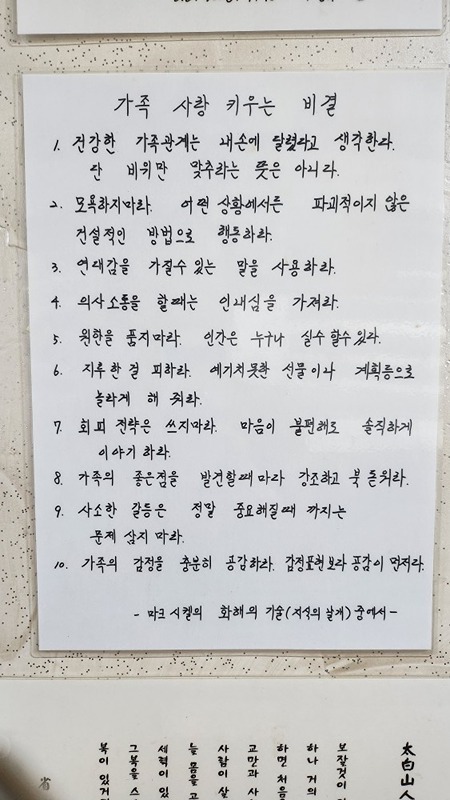 가족 사랑 키우는 비결
1. 건강한 가족관계는 내손에 달렸다고 생각한다.
단 비위만 맞추라는 뜻은 아니라.
2. 모욕하지마라. 어떤 상황에서든 파괴적이지 않은
건설적인 방법으로 행동하라.
3. 연대감을 가질수 있는 말을 사용하라.
4. 의사소통을 할때는 인내심을 가져라.
5. 원한을 품지마라. 인간은 누구나 실수 할수있다.
6. 지루한걸 피하라. 예기치못한 선물이나 계획등으로
놀라게 해 줘라.
7. 회피 전략은 쓰지마라. 마음이 불편해도 솔직하게
이야기 하라.
8. 가족의 좋은점을 발견할때마다 강조하고 북돋워라.
9. 사소한 갈등은 정말 중요해질때 까지는
문제 삼지 마라.
10. 가족의 감정을 충분히 공감하라. 감정표현보다 공감이 먼저다.
- 마크 시켈의 화해의 기술(지식의 날개) 중에서 -
太白山人
보잘것이
하나 거의
하면 처음
교만과 사
사람이 살
늘 몸을 고
세력이 있
그복을 스
복이 있거
省